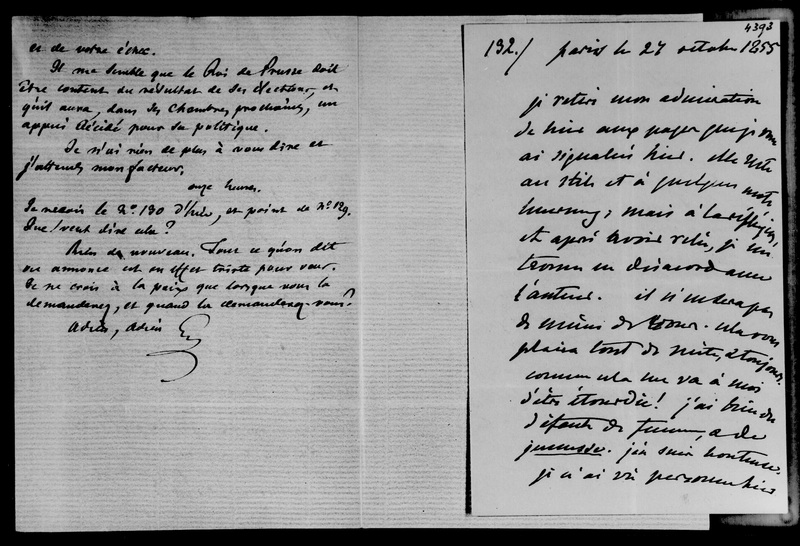 et de votre échec.
Il me semble que le Roi de Prusse doit
être content du résultat de ses élections, et
qu'il aura, dans ses chambres prochaines, un
appui décidé pour sa politique.
Je n'ai rien de plus à vous dire et
j'attends mon facteur.
onze heures.
Je reçois le N° 130 d'hier, et point de N° 129.
Que veut dire cela?
Rien de nouveau. Tout ce qu'on dit
ou annonce est en effet triste pour vous.
Je ne crois à la paix que lorsque vous la
demanderez, et quand la demanderez-vous?
Adieu, adieu
4393
132./ paris le 27 octobre 1855
je retire mon admiration
de hier aux pages que je vous
ai signalées hier. elle reste
au style et à quelques mots
heureux; mais à la réflexion,
et après l'avoir relu, je me
trouve en désaccord avec
l'auteur. il n'en sera pas
de même de vous. cela vous
plaira tout de suite, et toujours.
comme cela me va à moi
d'être étourdie! j'ai bien des
défauts de femme, et de
jeunesse. j'en suis honteuse.
je n'ai vu personne hier